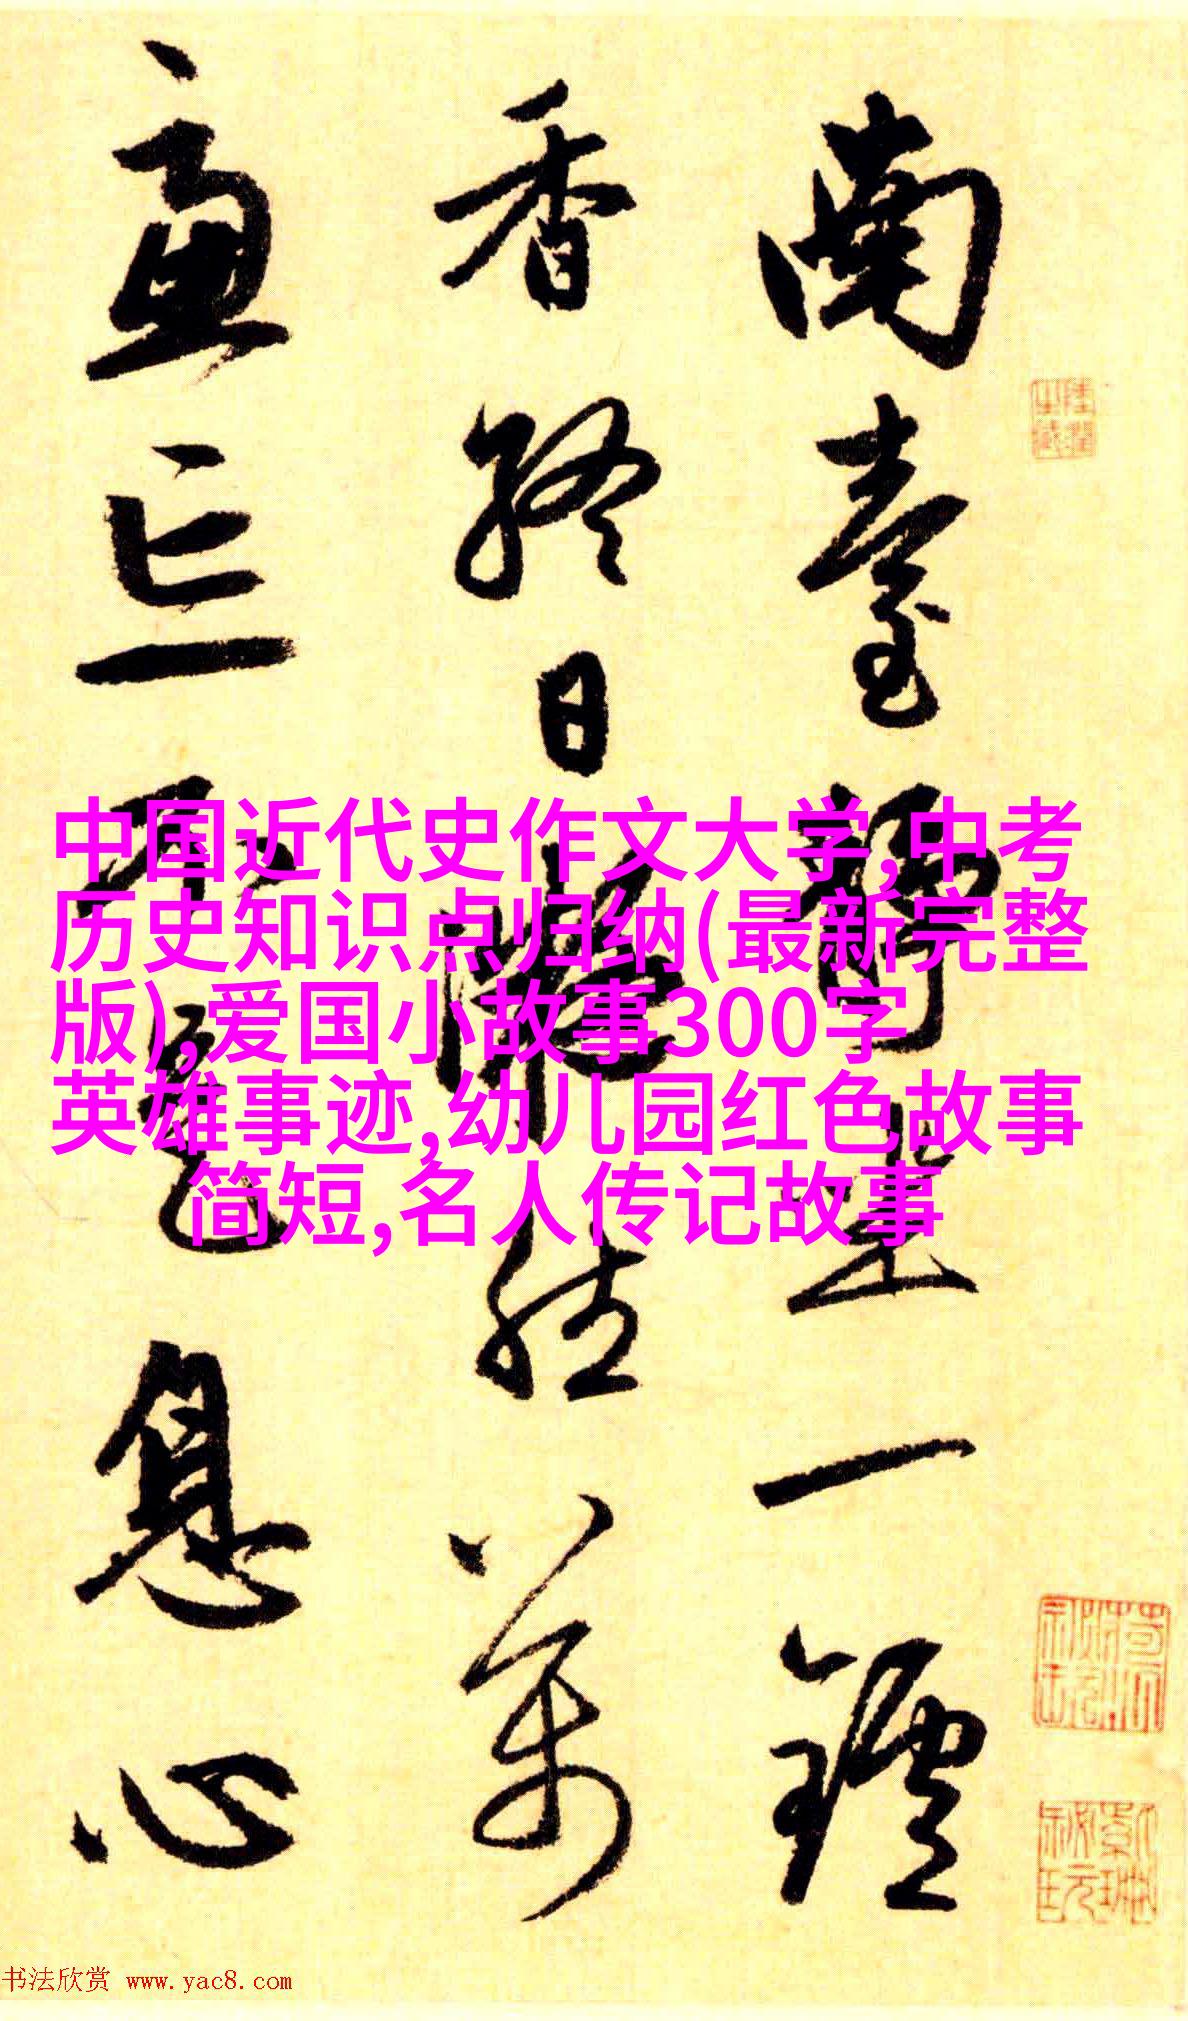 南臺靜坐一鑪
香終日凝然萬
慮亡不是息心
中国近代史作文大学,中考
历史知识点归纳(最新完整
版),爱国小故事300字
英雄事迹,幼儿园红色故事
简短,名人传记故事
书法欣赏 www.yac8.com